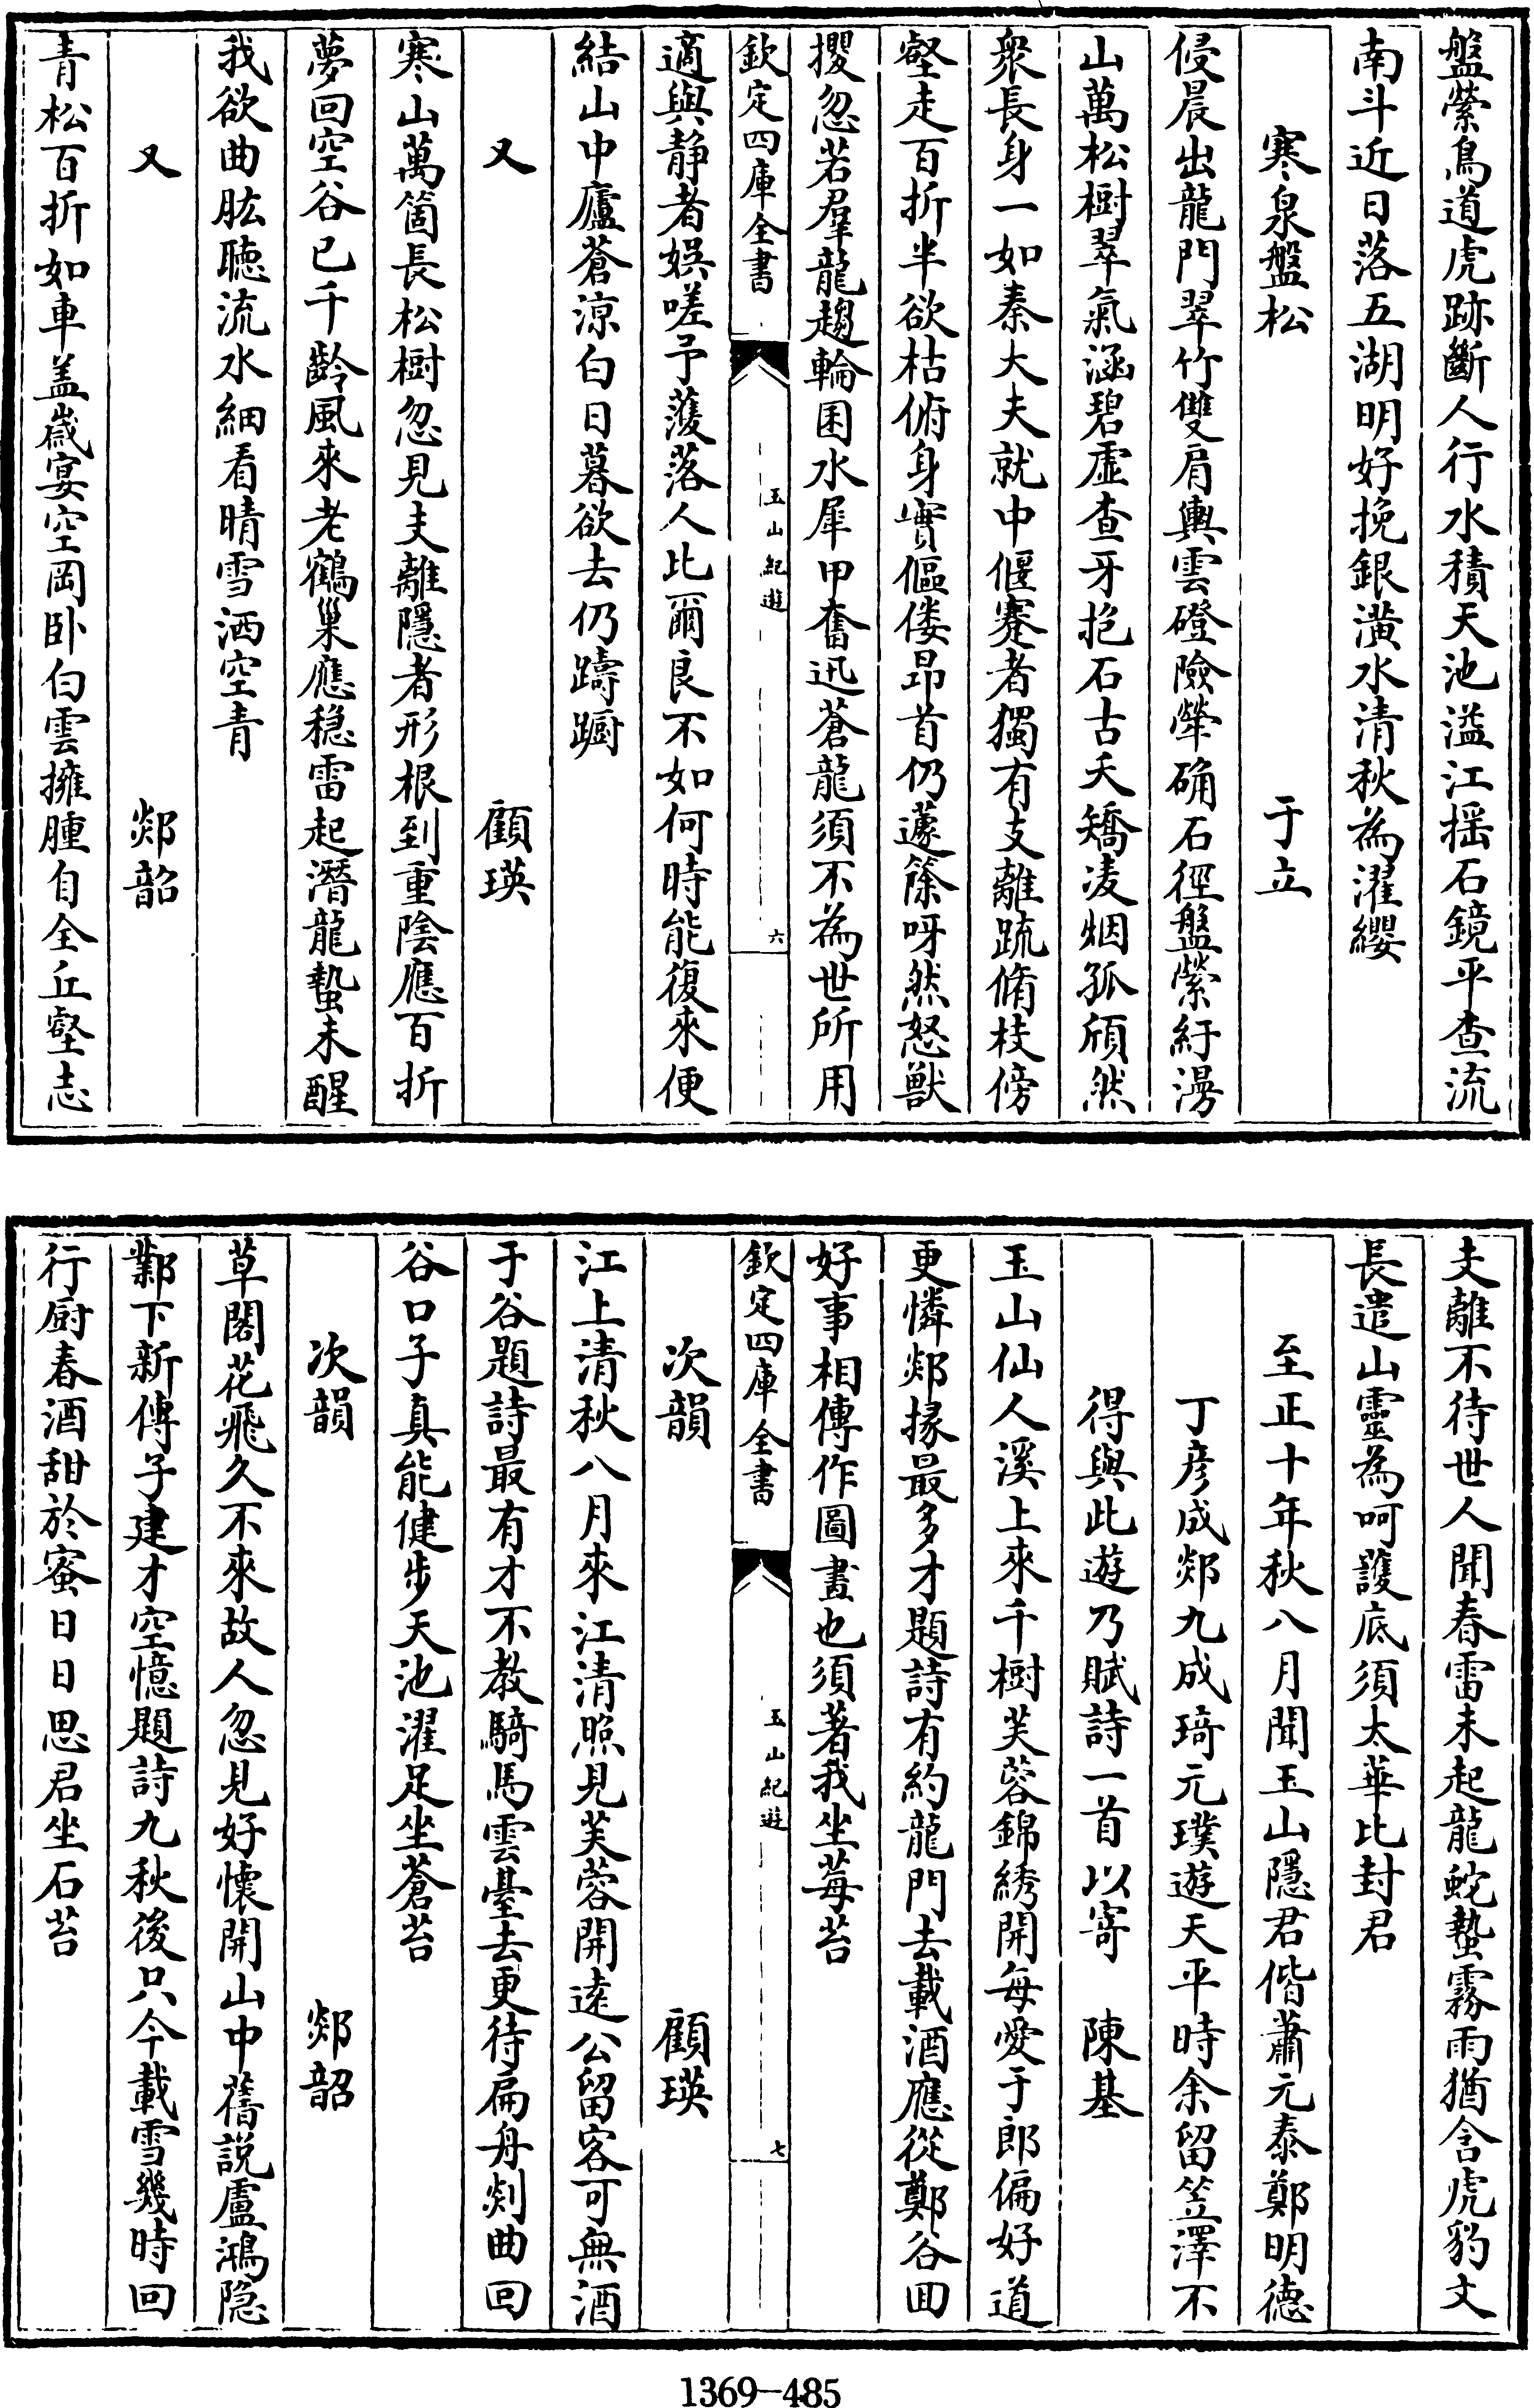 盤縈鳥道虎跡斷人行水積天池溢江揺石鏡平查流
南斗近日落五湖明好挽銀潢水清秋為濯纓
寒泉盤松　于立
侵晨出龍門翠竹雙肩輿雲磴險犖确石徑盤縈紆漫
山萬松樹翠氣涵碧虛查牙抱石古夭矯凌烟孤頎然
衆長身一如秦大夫就中偃蹇者獨有支離疏脩枝傍
壑走百折半欲枯俯身實傴僂昂首仍蘧篨呀然怒獸
攫忽若羣龍趨輪囷水犀甲奮迅蒼龍須不為世所用
欽定四庫全書　玉山紀遊　六
適與静者娯嗟予濩落人比爾良不如何時能復來便
結山中廬蒼凉白日暮欲去仍躊蹰
又　顧瑛
寒山萬箇長松樹忽見支離隱者形根到重陰應百折
夢回空谷已千齡風來老鶴巢應穏雷起潛龍蟄未醒
我欲曲肱聴流水細看晴雪洒空青
又　郯韶
青松百折如車盖歳宴空岡卧白雲擁腫自全丘壑志
支離不待世人聞春雷未起龍蛇蟄霧雨猶含虎豹文
長遣山靈為呵護底須太華比封君
至正十年秋八月聞玉山隱君偕蕭元泰鄭明德
丁彦成郯九成琦元璞遊天平時余留笠澤不
得與此遊乃賦詩一首以寄　陳基
玉山仙人溪上來千樹芙蓉錦綉開每愛于郎偏好道
更憐郯掾最多才題詩有約龍門去載酒應從鄭谷回
好事相傳作圖畫也須著我坐莓苔
欽定四庫全書　玉山紀遊　七
次韻　顧瑛
江上清秋八月來江清照見芙蓉開逺公留客可無酒
于谷題詩最有才不教騎馬雲臺去更待扁舟剡曲回
谷口子真能健步天池濯足坐蒼苔
次韻　郯韶
草閣花飛久不來故人忽見好懷開山中舊説盧鴻隐
鄴下新傳子建才空憶題詩九秋後只今載雪幾時回
行厨春酒甜於蜜日日思君坐石苔
1369—485